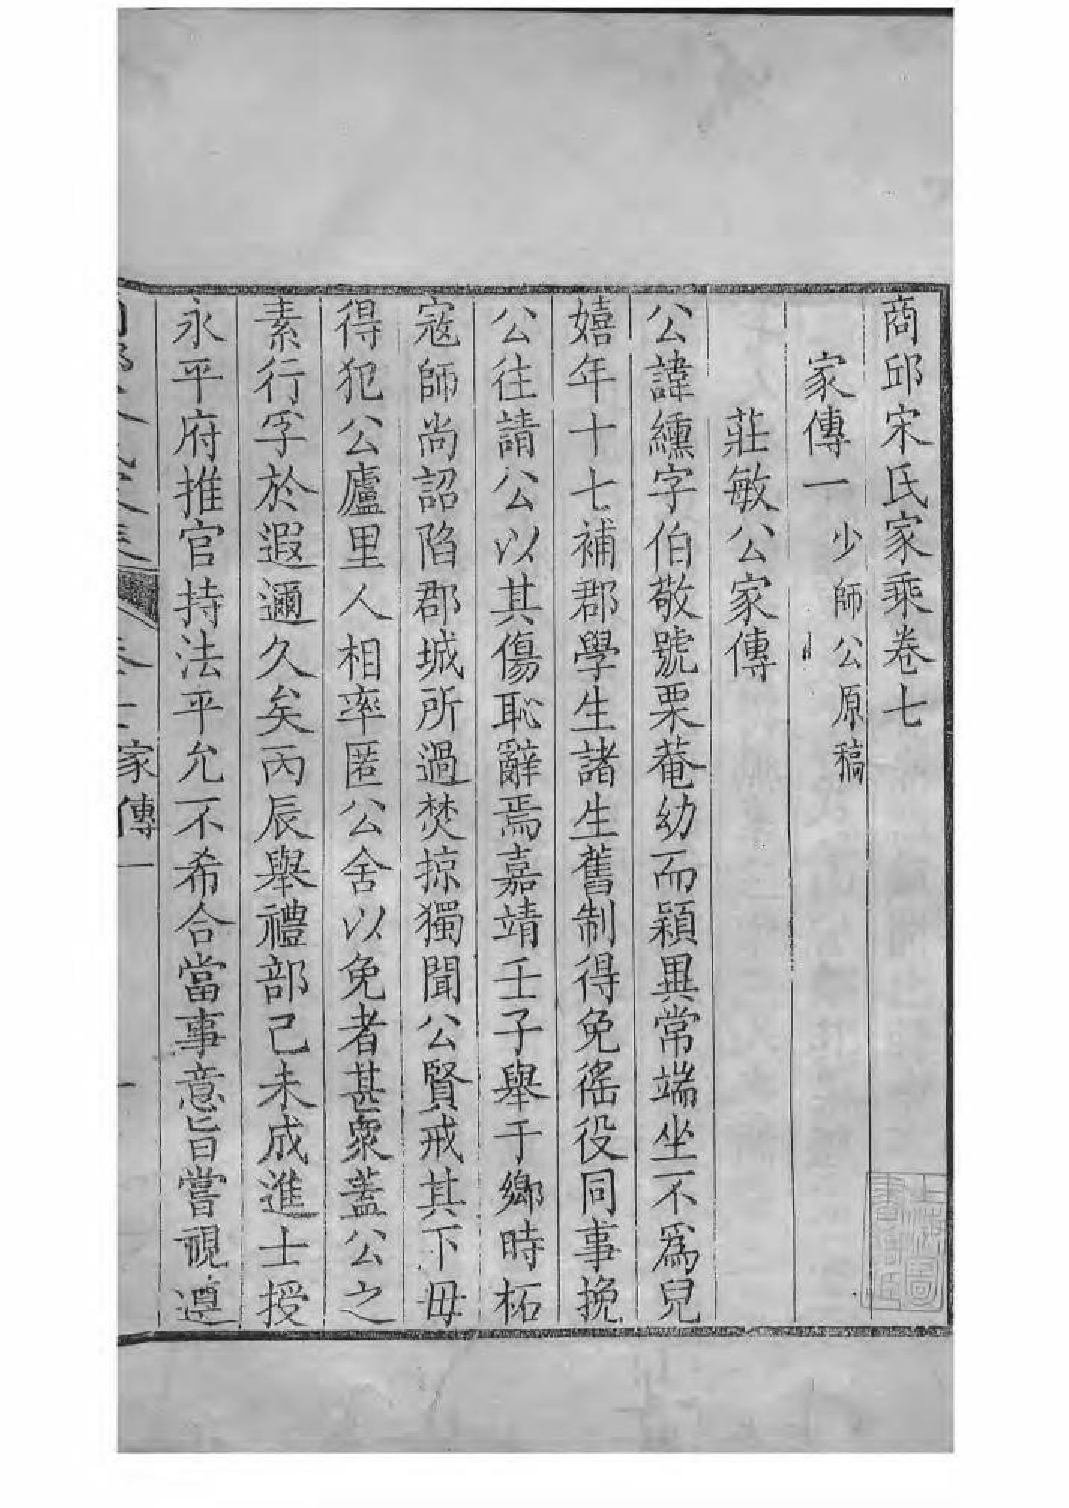 商邱宋氏家乘卷七
家傳一 少師公原稿
莊敏公家傳
公諱纁字伯敬號栗菴幼而穎異常端坐不爲兒
嬉年十七補郡學生諸生舊制得免徭役同事挽
公往請公以其傷恥辭焉嘉靖壬子舉于鄉時柘
寇師尚詔陷郡城所過焚掠獨聞公賢戒其下毋
得犯公廬里人相率匿公舍以免者甚衆蓋公之
素行孚於遐邇久矣丙辰舉禮部己未成進士授
永平府推官持法平允不希合當事意旨嘗視遵
家傳一
一
上海圖書館藏